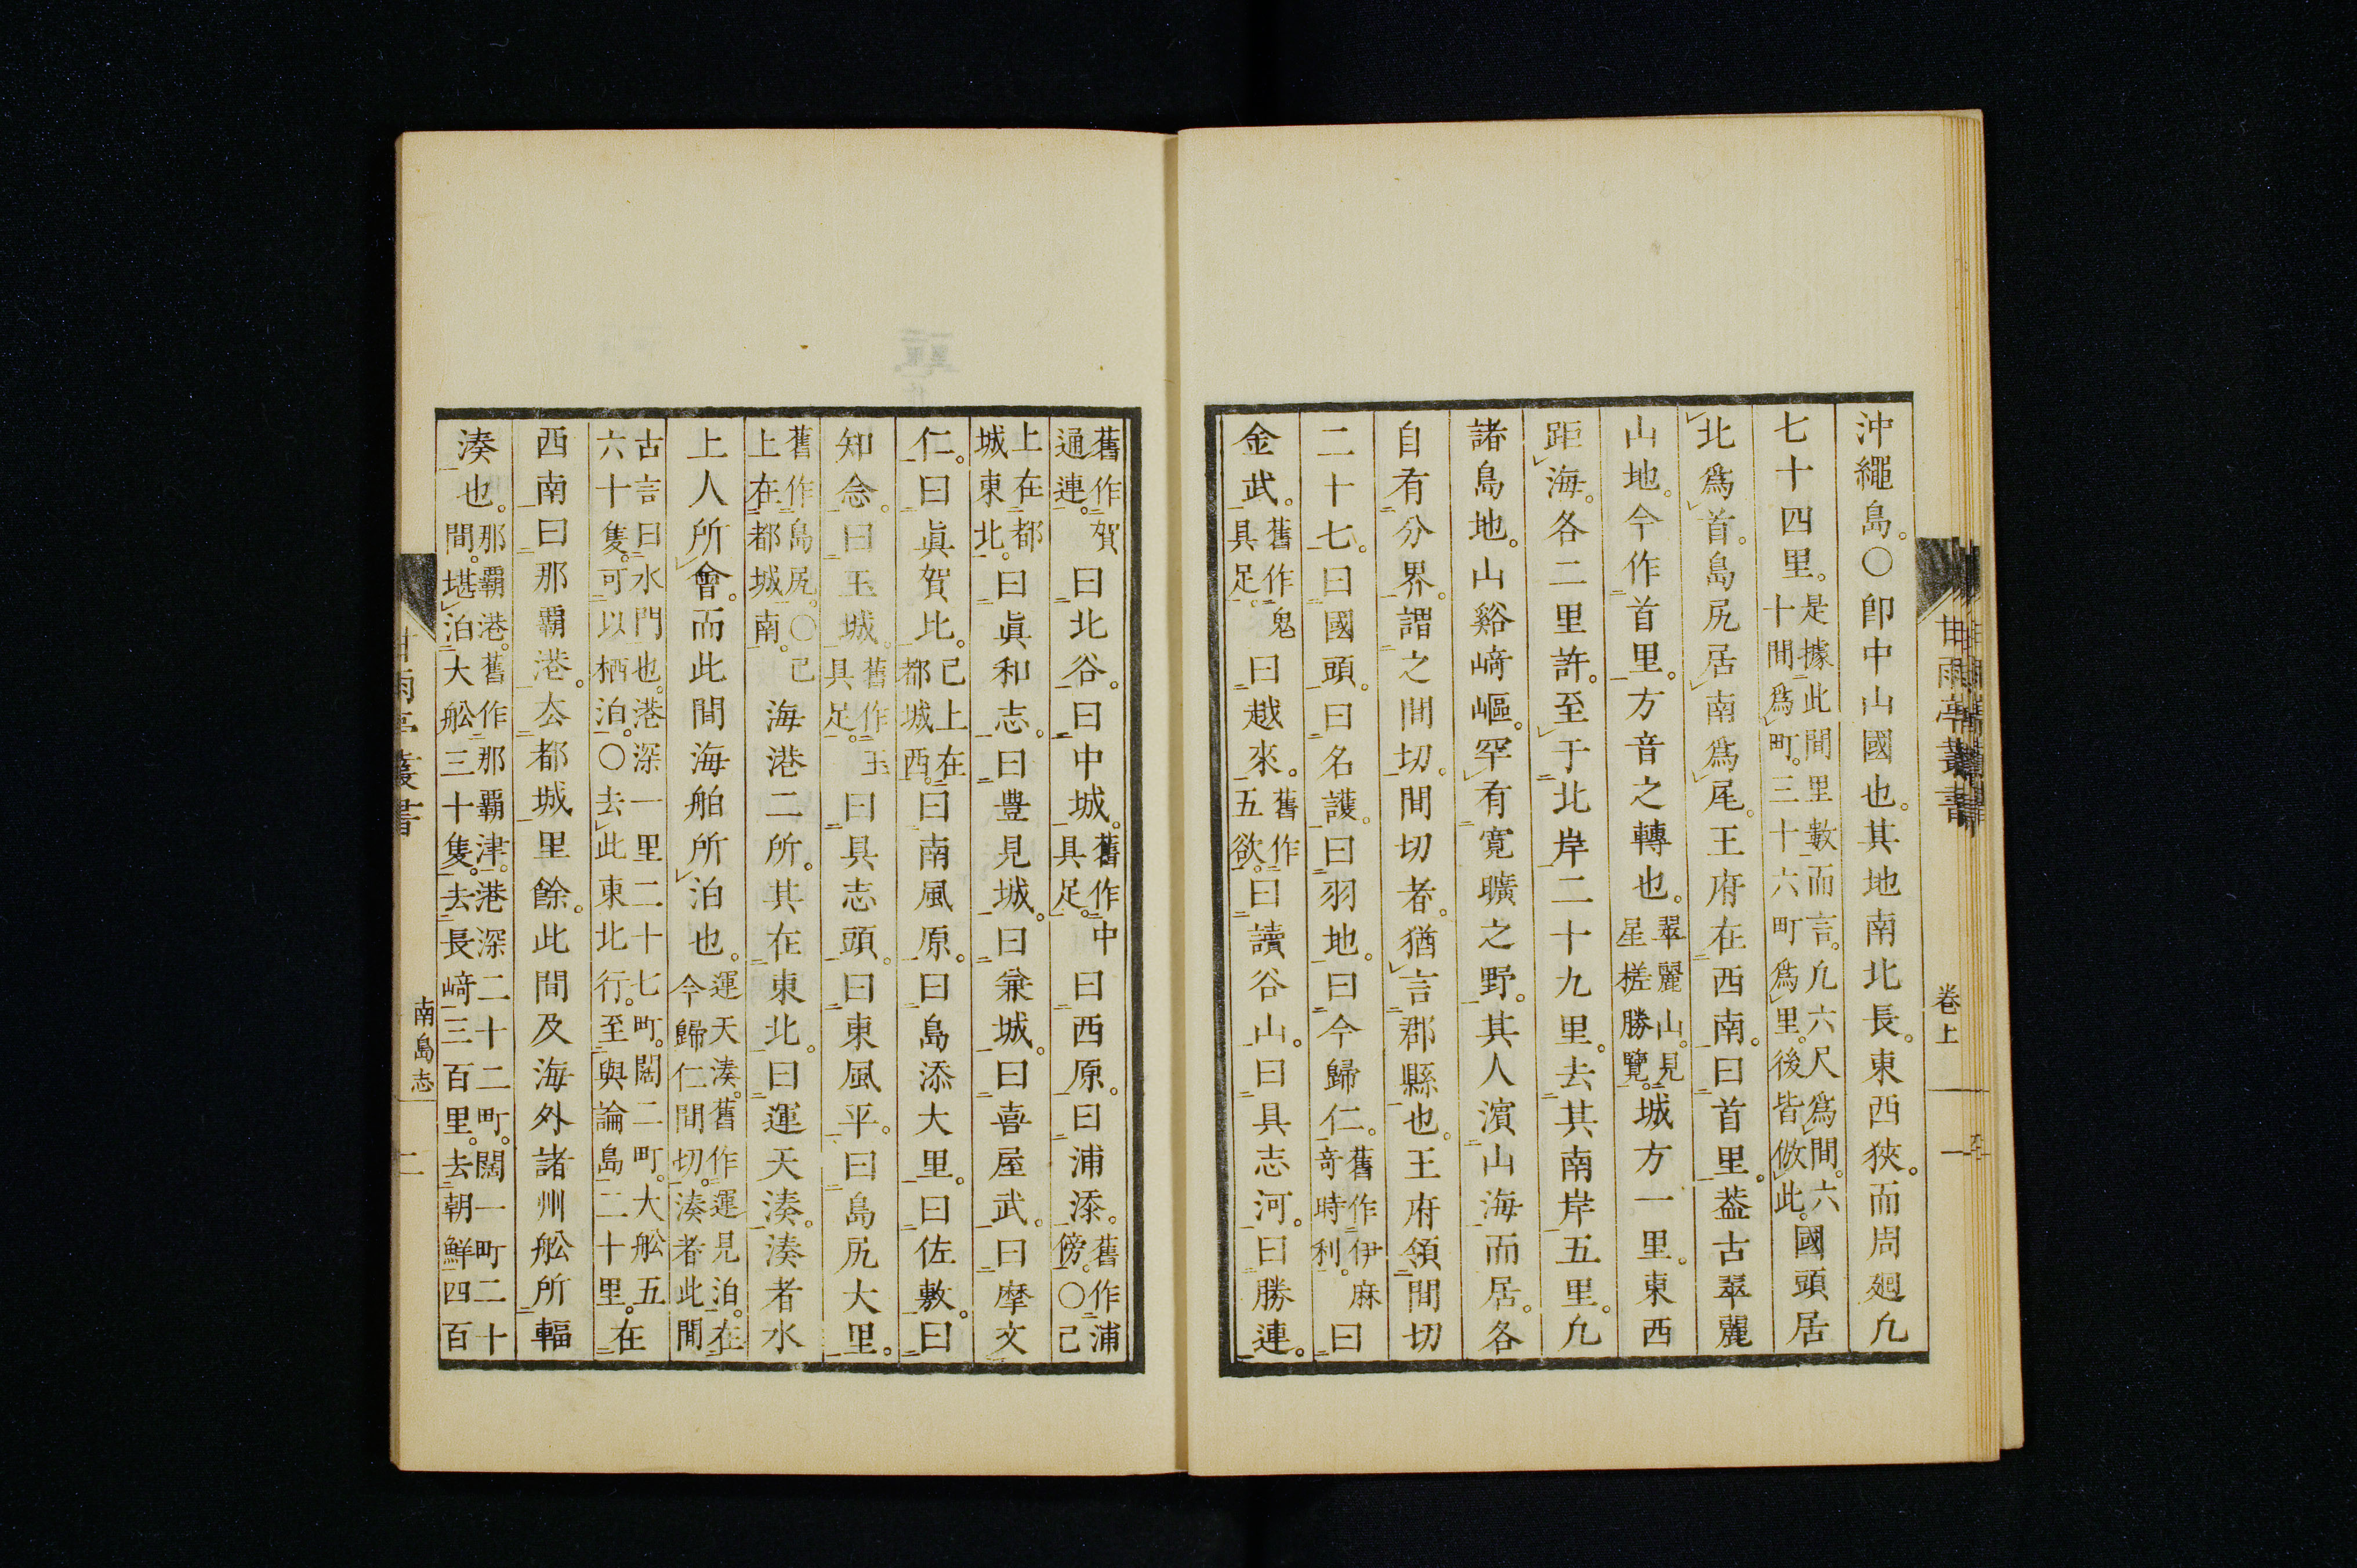 沖繩島。〇卽中山國也。其地南北長。東西狹。而周廻凢
七十四里。是據此間里數而言。凢六尺爲間。六十間爲町。三十六町爲里。後皆倣此。國頭居
北爲首。島尻居南爲尾。王府在西南。曰首里。葢古翠麗
山地。今作首里。方音之轉也。翠麗山。見星槎勝覽。城方一里。東西
距海。各二里許。至于北岸二十九里。去其南岸五里。凢
諸島地。山谿﨑嶇。罕有寛曠之野。其人濱山海而居。各
自有分界。謂之間切。間切者。猶言郡縣也。王府領間切
二十七。曰國頭。曰名護。曰羽地。曰今歸仁。舊作伊麻竒時利。曰
金武。舊作鬼具足。曰越來。舊作五欲。曰讀谷山。曰具志河。曰勝連。
舊作賀通連。曰北谷。曰中城。舊作中具足。曰西原。曰浦添。舊作浦傍。〇已
上在都城東北。曰眞和志。曰豊見城。曰兼城。曰喜屋武。曰摩文
仁。曰眞賀比。已上在都城西。曰南風原。曰島添大里。曰佐敷。曰
知念。曰玉城。舊作玉具足。曰具志頭。曰東風平。曰島尻大里。
舊作島尻。〇已上在都城南。海港二所。其在東北。曰運天湊。湊者水
上人所會。而此間海舶所泊也。運天湊。舊作運見泊。在今歸仁間切。湊者此間
古言曰水門也。港深一里二十七町。闊二町。大舩五六十隻。可以栖泊。〇去此東北行。至與論島二十里。在
西南曰那覇港。厺都城里餘。此間及海外諸州舩所輻
湊也。那覇港。舊作那覇津。港深二十二町。闊一町二十間。堪泊大舩三十隻。去長﨑三百里。去朝鮮四百
甘雨亭叢書
卷上
一
甘雨亭叢書
南島志
二